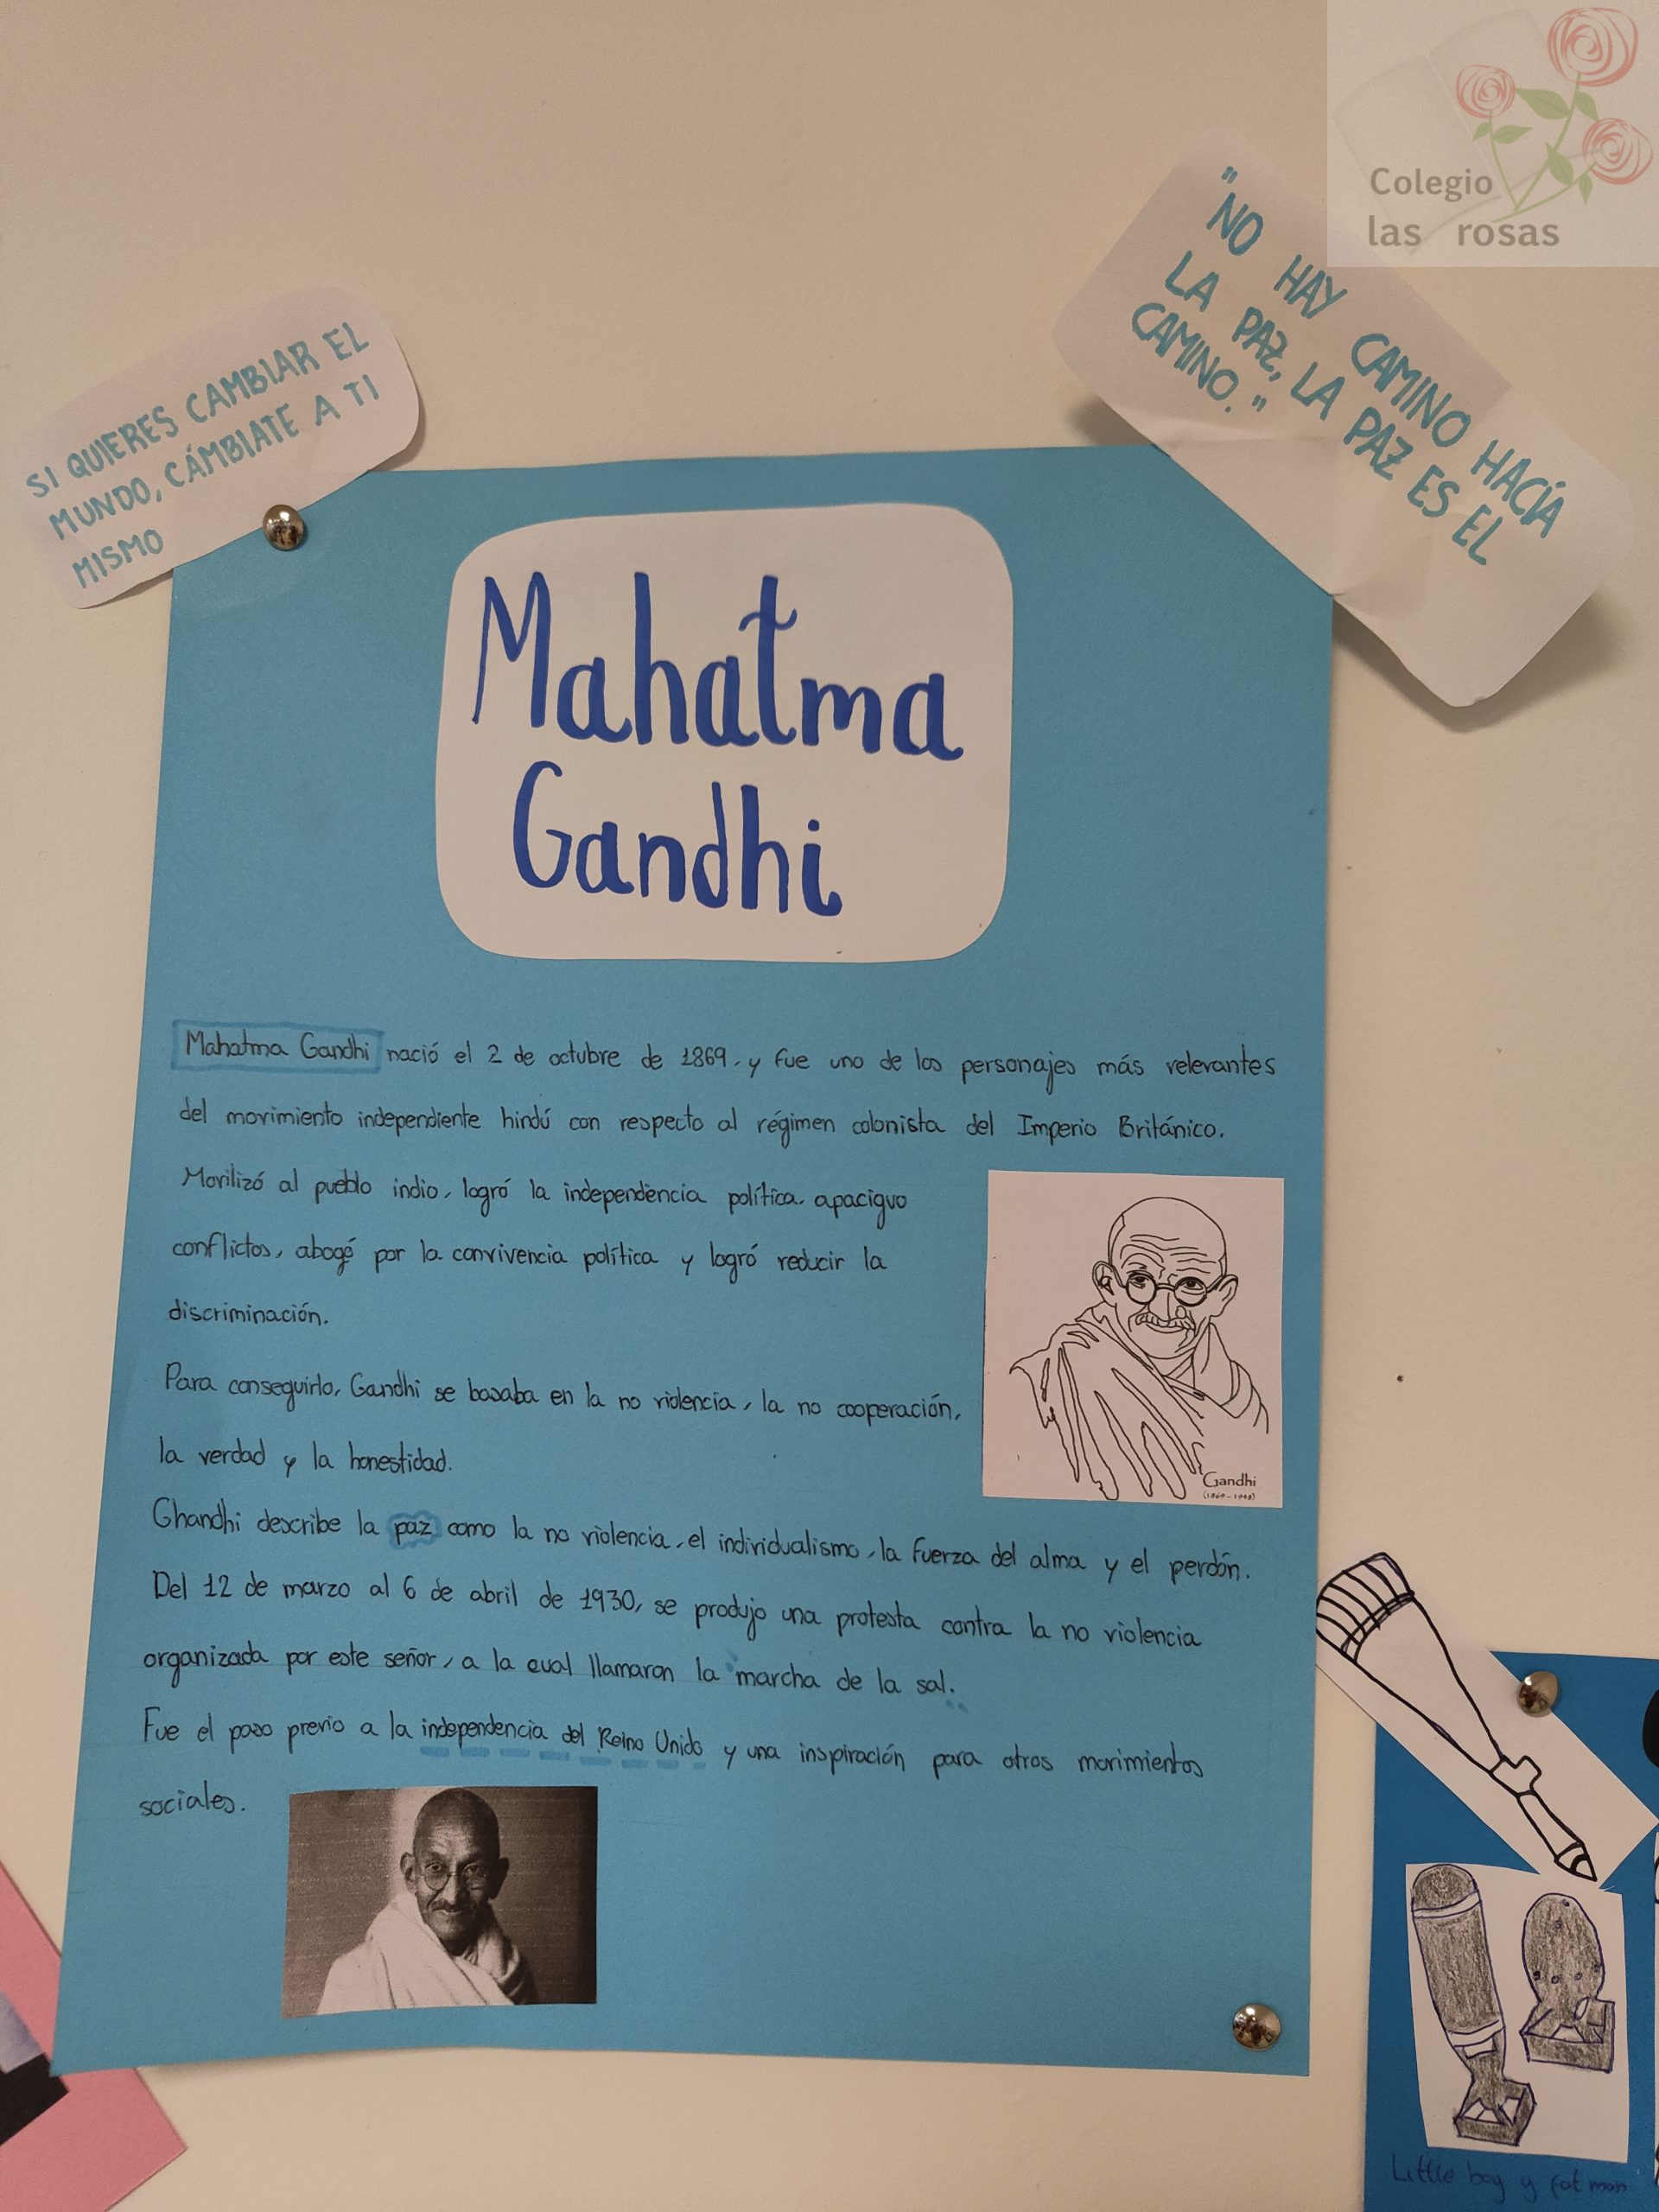 Colegio
las rosas
"NO HAY CAMINO HACÍA
LA PAZ, LA PAZ ES EL
CAMINO."
SI QUIERES CAMBIAR EL
MUNDO, CÁMBIATE A TI
MISMO
Mahatma
Gandhi
Mahatma Gandhi nació el 2 de octubre de 1869, y fue uno de los personajes más relevantes
del movimiento independiente hindú con respecto al régimen colonista del Imperio Británico.
Movilizó al pueblo indio, logró la independencia política, apaciguo
conflictos, abogó por la convivencia política y logró reducir la
discriminación.
Para conseguirlo, Gandhi se basaba en la no violencia, la no cooperación,
la verdad y la honestidad.
Ghandhi describe la paz como la no violencia, el individualismo, la fuerza del alma y el perdón.
Del 12 de marzo al 6 de abril de 1930, se produjo una protesta contra la no violencia
organizada por este señor, a la cual llamaron la "marcha de la sal."
Fue el paso previo a la independencia del Reino Unido y una inspiración para otros movimientos
sociales.
Gandhi
(1869-1948)
Little boy y fat man